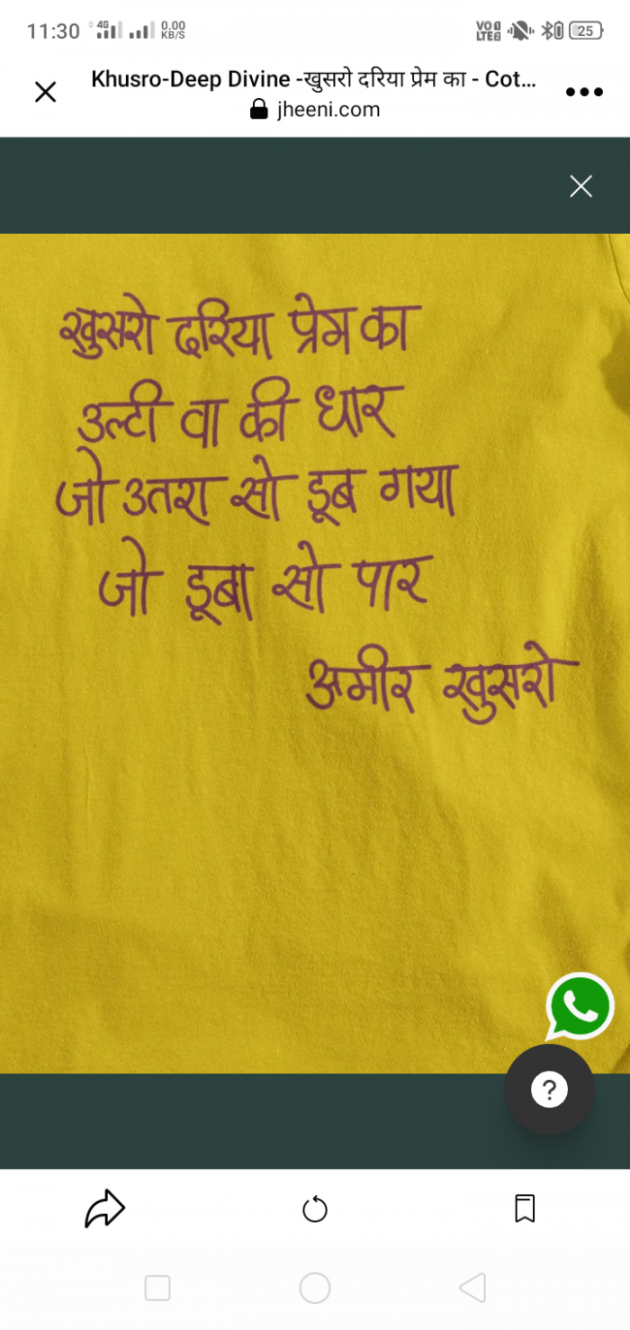 11:30 4G 0.00 KB/S VO LTE 25
Khusro-Deep Divine -खुसरो दरिया प्रेम का - Cot...
jheeni.com
खुसरो दरिया प्रेम का
उल्टी वा की धार
जो उतरा सो डूब गया
जो डूबा सो पार
अमीर खुसरो
?